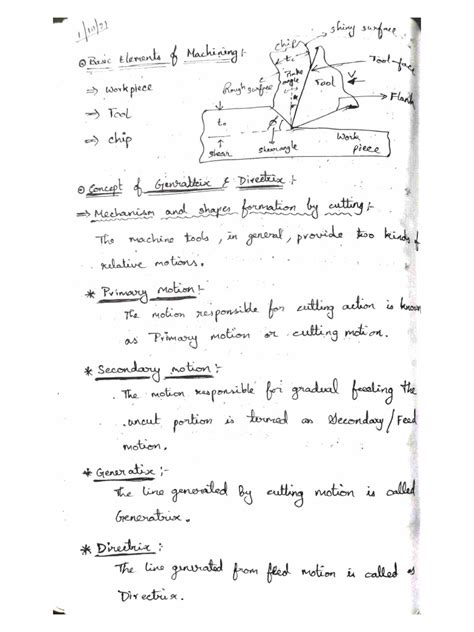 1/10/21
⊙ Basic Elements of Machining :-
⇒ Workpiece
→ Tool
⇒ chip
shiny surface
chip
tc
Rake angle
Tool-face
Tool
Flank
Rough surface
to
ϕ
shear
shear angle
Work piece
⊙ Concept of Genrattrix & Directrix :-
⇒ Mechanism and shapes formation by cutting :-
The machine tools, in general, provide two kinds of
relative motions.
* Primary Motion :-
The motion responsible for cutting action is known
as Primary motion or cutting motion.
* Secondary motion :-
The motion responsible for gradual feeding the
uncut portion is termed as Secondary/Feed
motion.
* Generatix :-
The line generated By cutting motion is called
Generatrix.
* Directrix :
The line generated from feed motion is called as
Directrix.